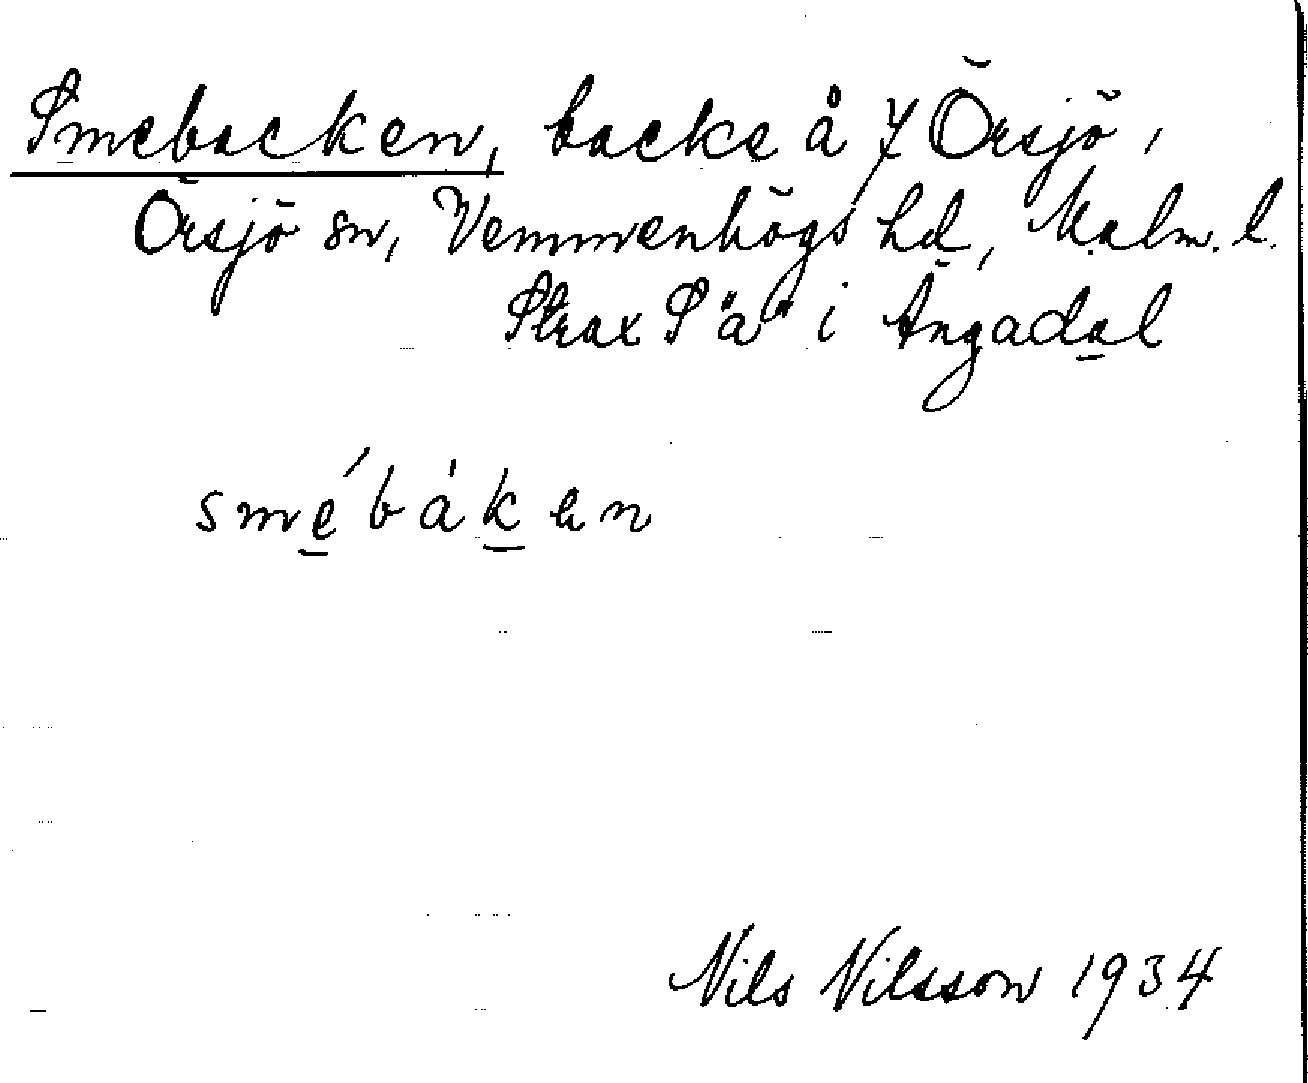 Smebacken, backe å 7 Örsjö,
Örsjö sn, Vemmenhögs hd, Malm. l.
Strax S "ä" i Ängadal
smébàken
Nils Nilsson 1934